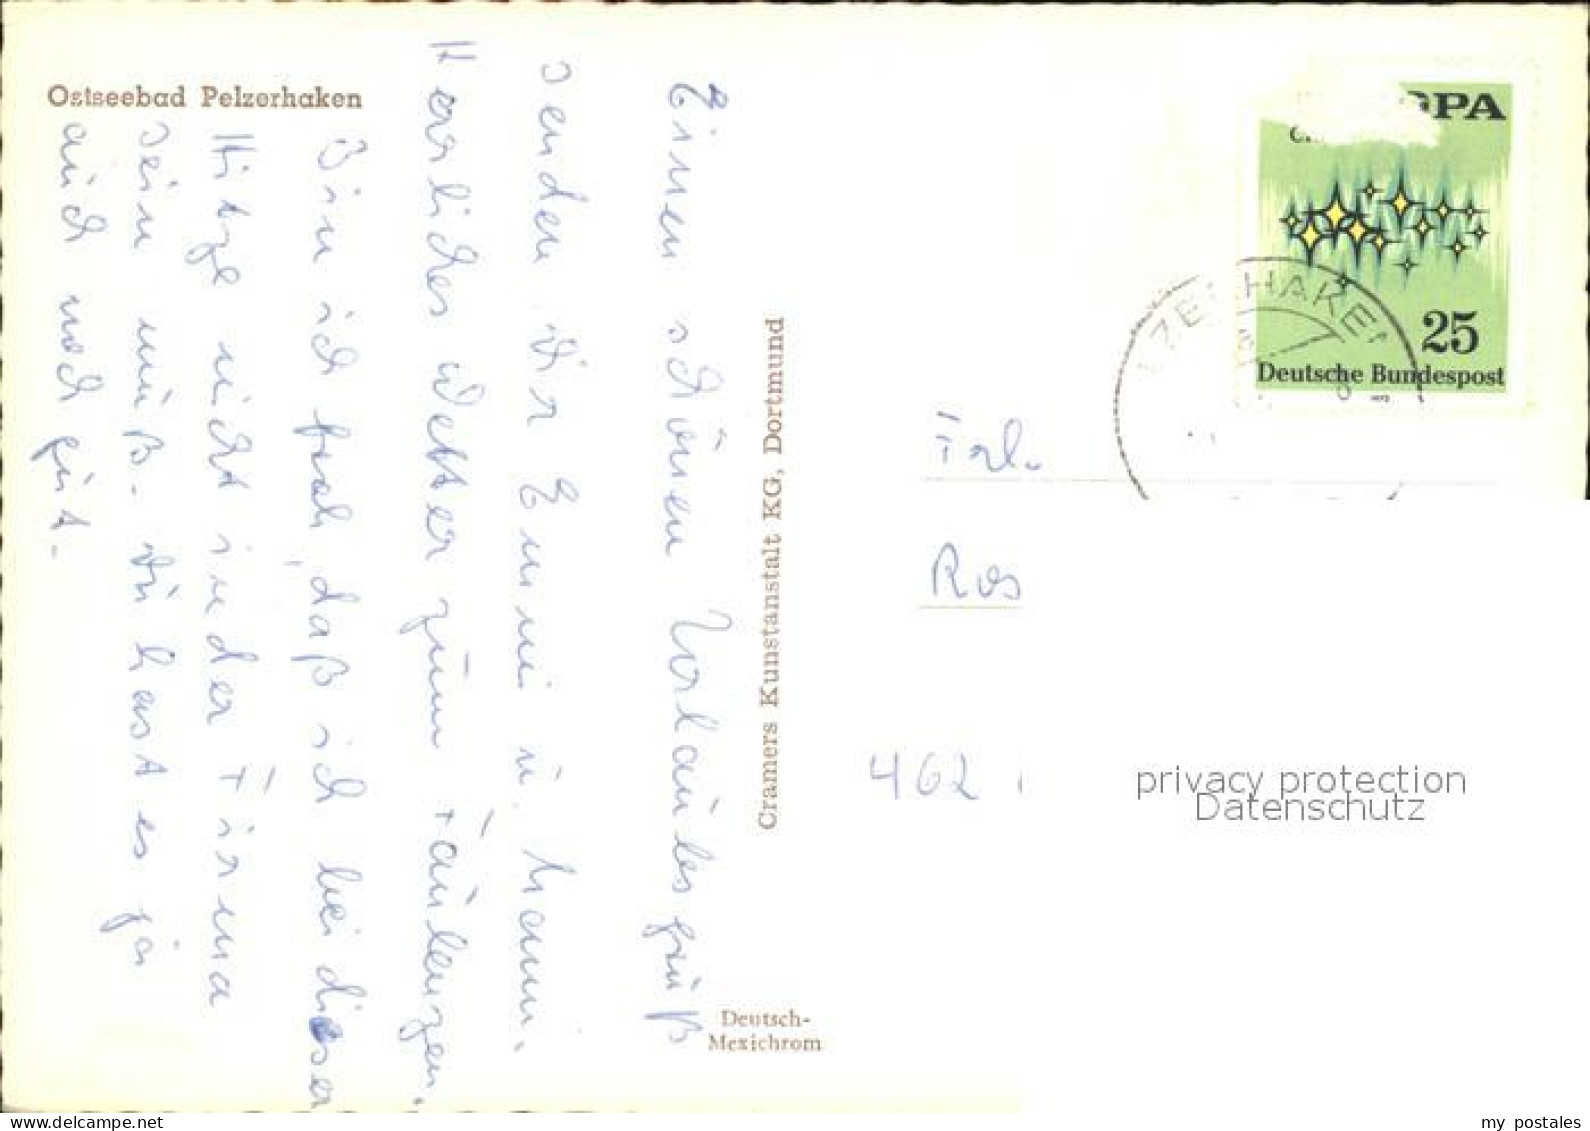 Ostseebad Pelzerhaken
Einen schönen Urlaubsgruß
senden Dir Emmi u. Hanni.
Herrliches Wetter zum Faulenzen.
Bin ich froh, daß ich bei dieser
Hitze nicht in der Firma
sein muß. Du hast es ja
auch noch gut.
Cramers Kunstanstalt KG, Dortmund
Deutsch-
Mexichrom
OPA
25
Deutsche Bundespost
LZERHAKEN
Frl.
Ros
462
privacy protection
Datenschutz
my postales